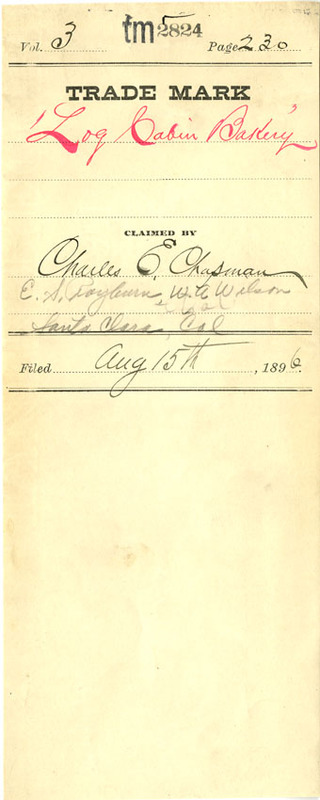 Vol. 3 tm 2824 Page 230
TRADE MARK
"Log Cabin Bakery"
CLAIMED BY
Charles E. Chapman
E. S. Rayburn, W. A. Wilson
Santa Clara, Cal
Filed Aug 15th, 1896.